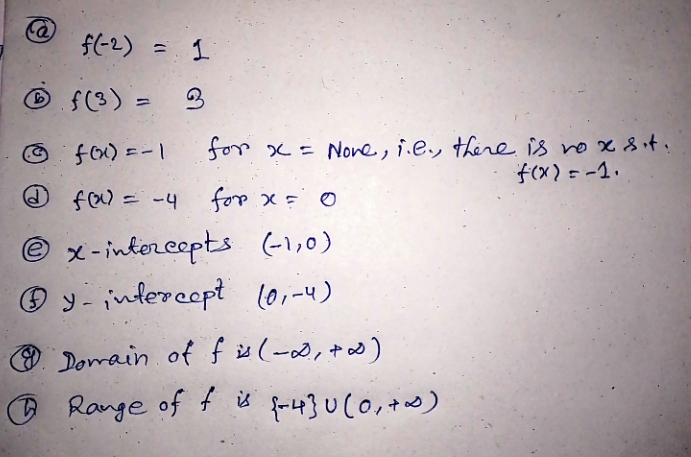 (a) f(-2) = 1
(b) f(3) = 3
(c) f(x) = -1 for x = None, i.e., there is no x s.t.
f(x) = -1.
(d) f(x) = -4 for x = 0
(e) x-intercepts (-1,0)
(f) y-intercept (0,-4)
(g) Domain of f is (-∞, +∞)
(h) Range of f is {-4} ∪ (0, +∞)